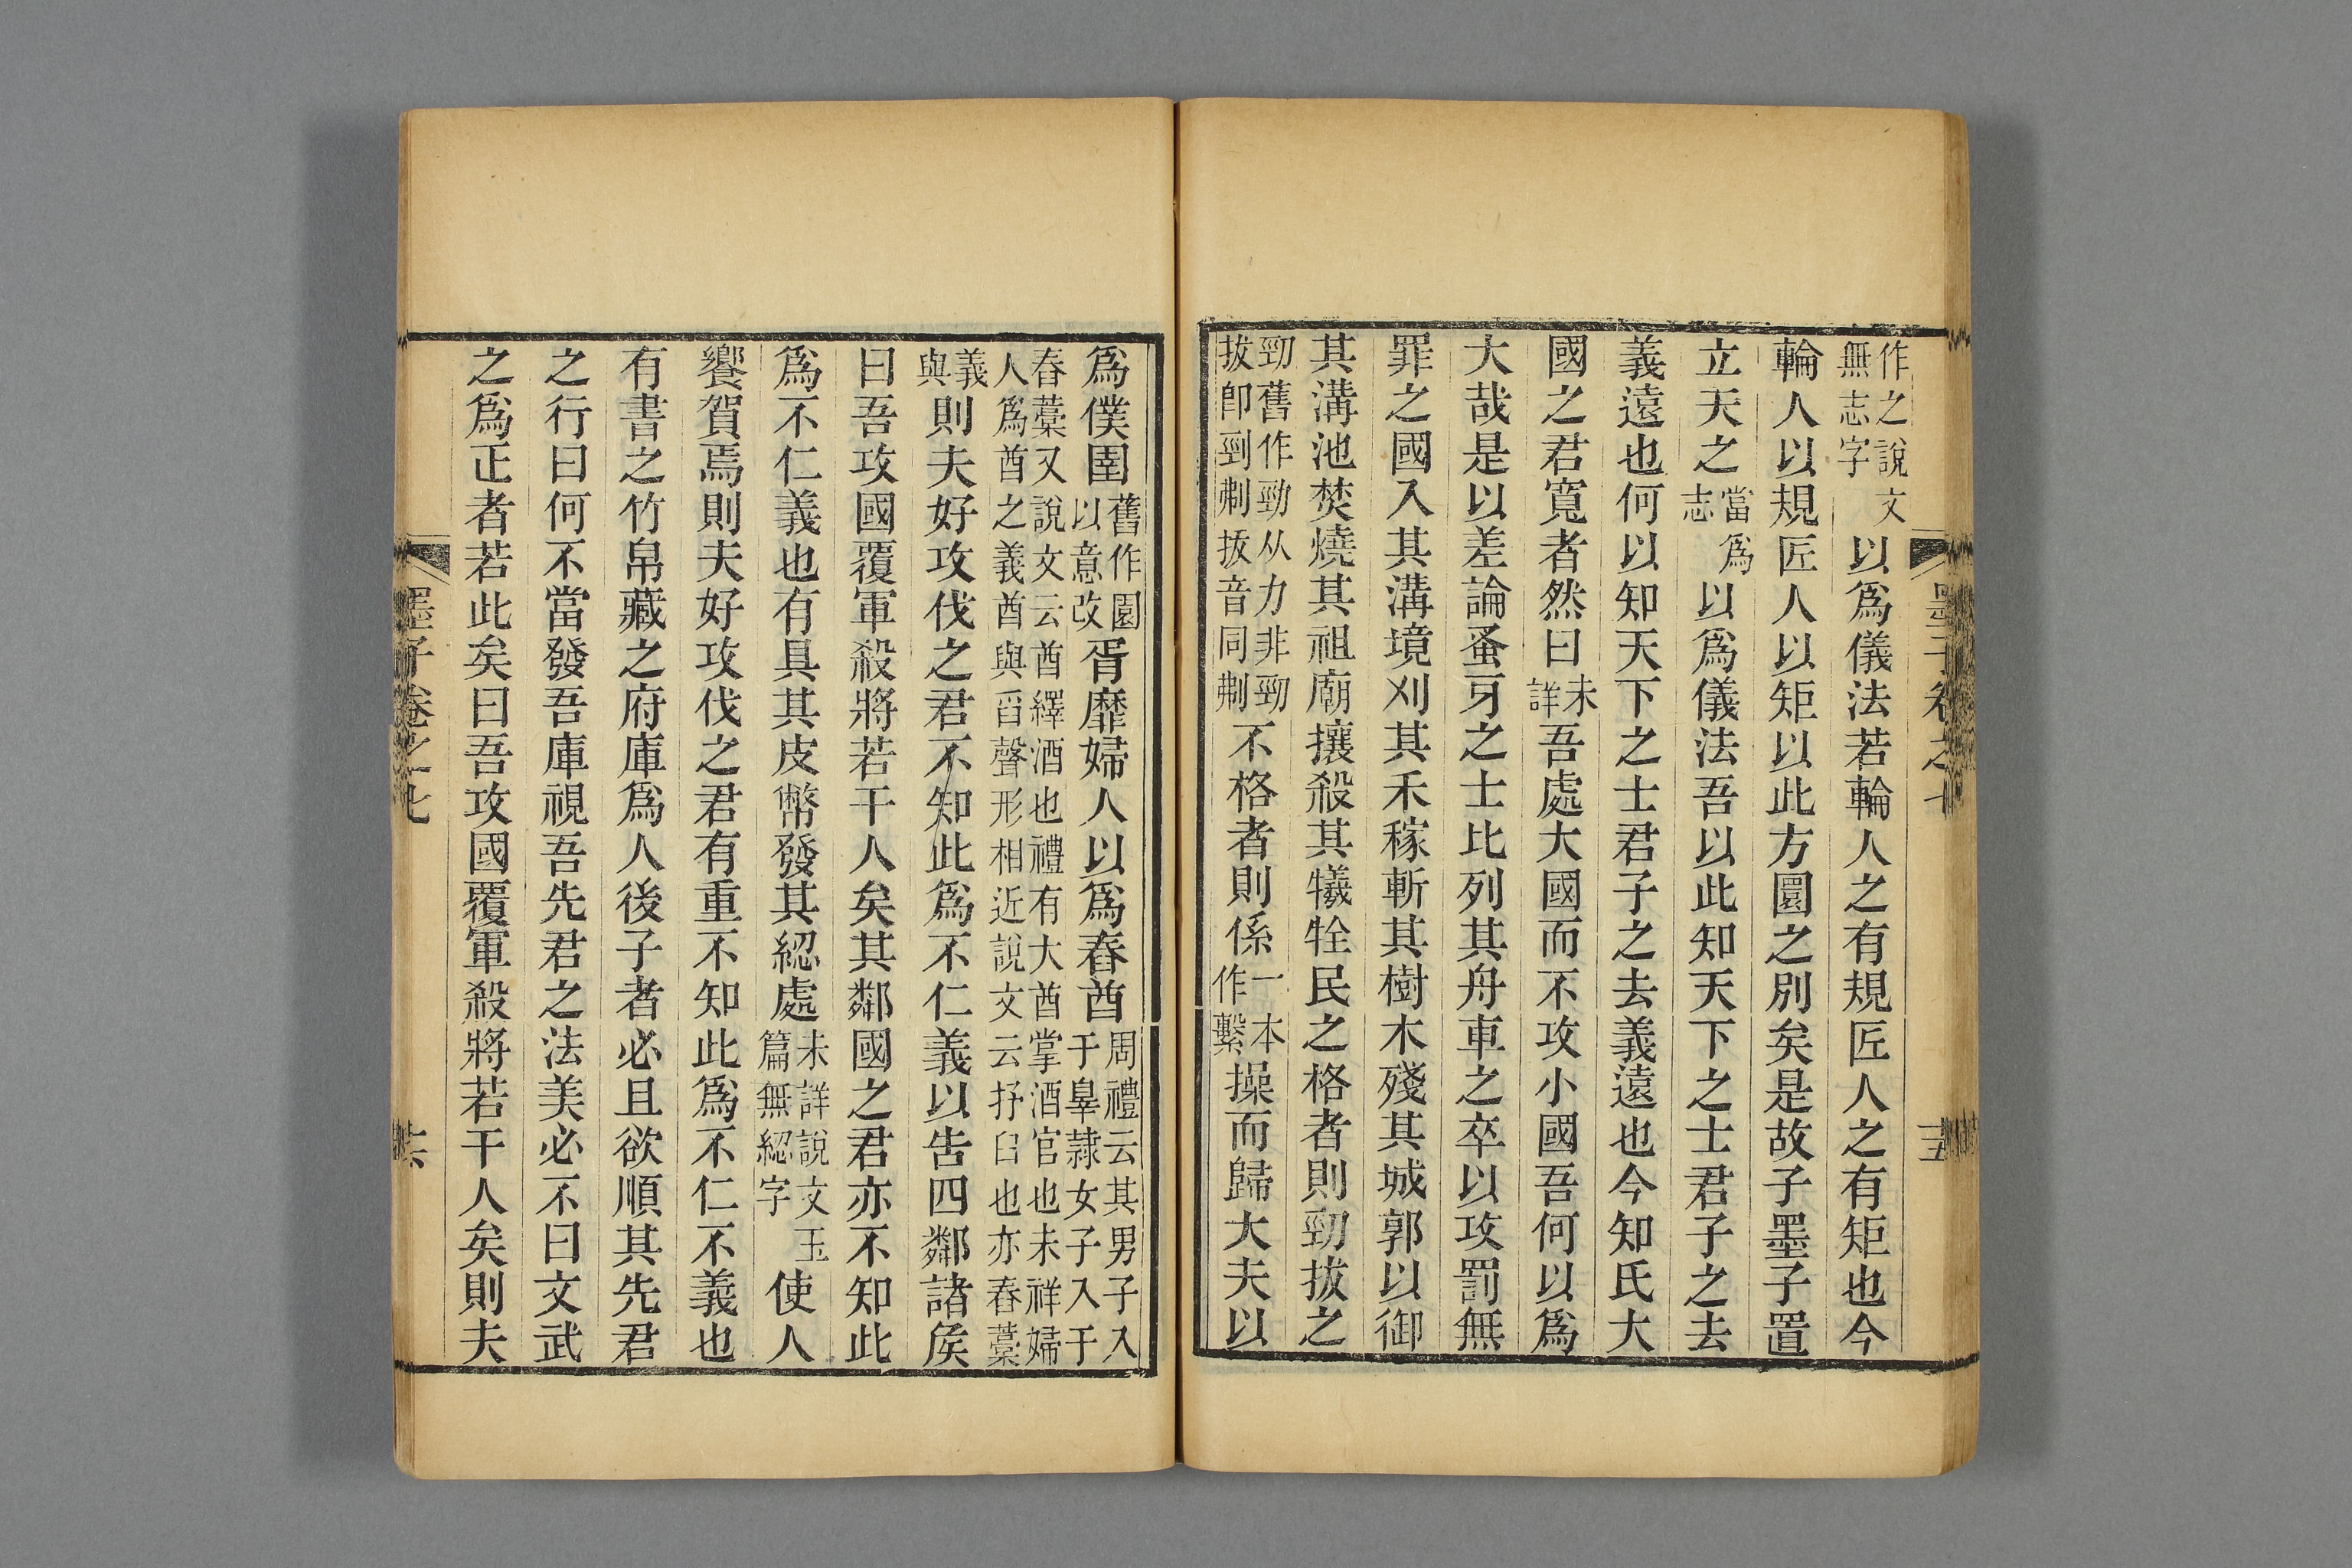 墨子卷之七
十五
作之說文無志字以爲儀法若輪人之有規匠人之有矩也今
輪人以規匠人以矩以此方圜之別矣是故子墨子置
立天之當爲志以爲儀法吾以此知天下之士君子之去
義遠也何以知天下之士君子之去義遠也今知氏大
國之君寬者然曰未詳吾處大國而不攻小國吾何以爲
大哉是以差論蚤牙之士比列其舟車之卒以攻罰無
罪之國入其溝境刈其禾稼斬其樹木殘其城郭以御
其溝池焚燒其祖廟攘殺其犧牷民之格者則勁拔之
勁舊作勁从力非勁拔卽剄刜拔音同刜不格者則係一本作繫操而歸大夫以
爲僕圉舊作園以意改胥靡婦人以爲舂酋周禮云其男子入于辠隷女子入于
舂藁又說文云酋繹酒也禮有大酋掌酒官也未祥婦人爲酋之義酋與舀聲形相近說文云抒臼也亦舂藁
義與則夫好攻伐之君不知此爲不仁義以告四鄰諸矦
曰吾攻國覆軍殺將若干人矣其鄰國之君亦不知此
爲不仁義也有具其皮幣發其綛處未詳說文玉篇無綛字使人
饗賀焉則夫好攻伐之君有重不知此爲不仁不義也
有書之竹帛藏之府庫爲人後子者必且欲順其先君
之行曰何不當發吾庫視吾先君之法美必不曰文武
之爲正者若此矣曰吾攻國覆軍殺將若干人矣則夫
墨子卷之七
十六